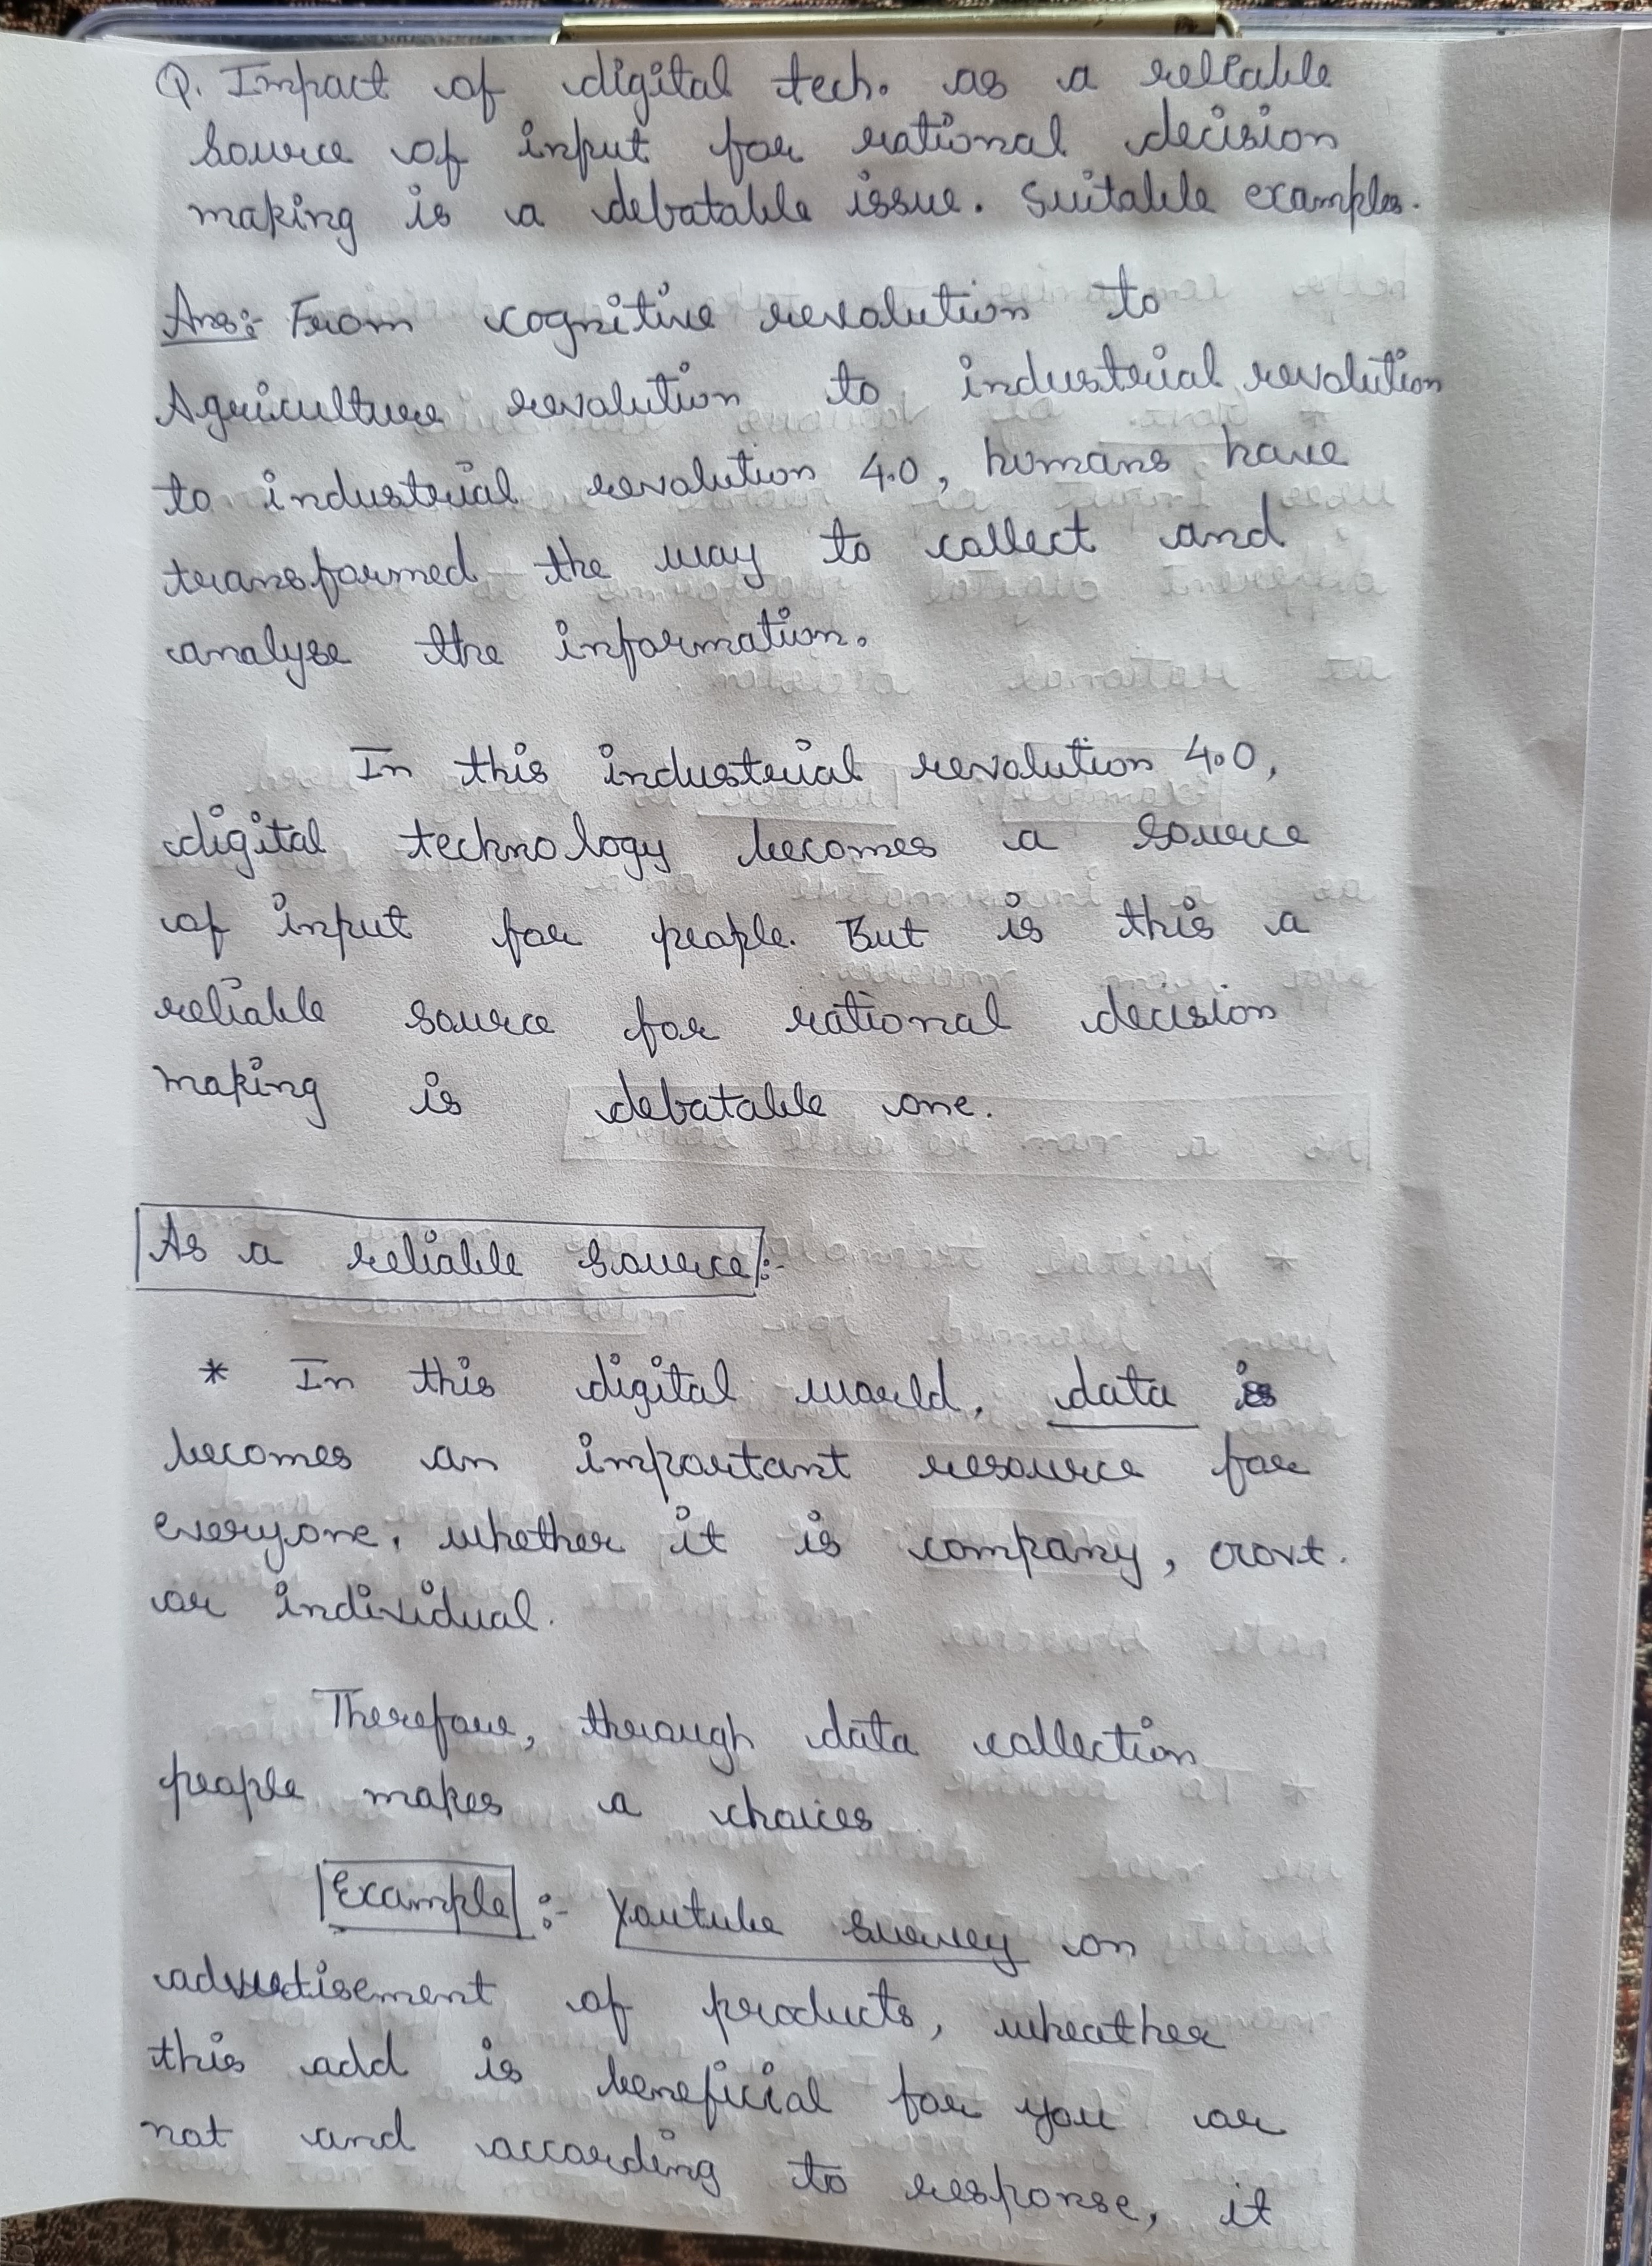 Q. Impact of digital tech. as a reliable
source of input for rational decision
making is a debatable issue. Suitable examples.
Ans:- From cognitive revolution to
Agriculture revolution to industrial revolution
to industrial revolution 4.0, humans have
transformed the way to collect and
analyse the information.
In this industrial revolution 4.0,
digital technology becomes a source
of input for people. But is this a
reliable source for rational decision
making is debatable one.
As a reliable source:-
* In this digital world, data is
becomes an important resource for
everyone, whether it is company, Govt.
or individual.
Therefore, through data collection
people makes a choices
Example :- Youtube survey on
advertisement of products, wheather
this add is beneficial for you or
not and according to response, it